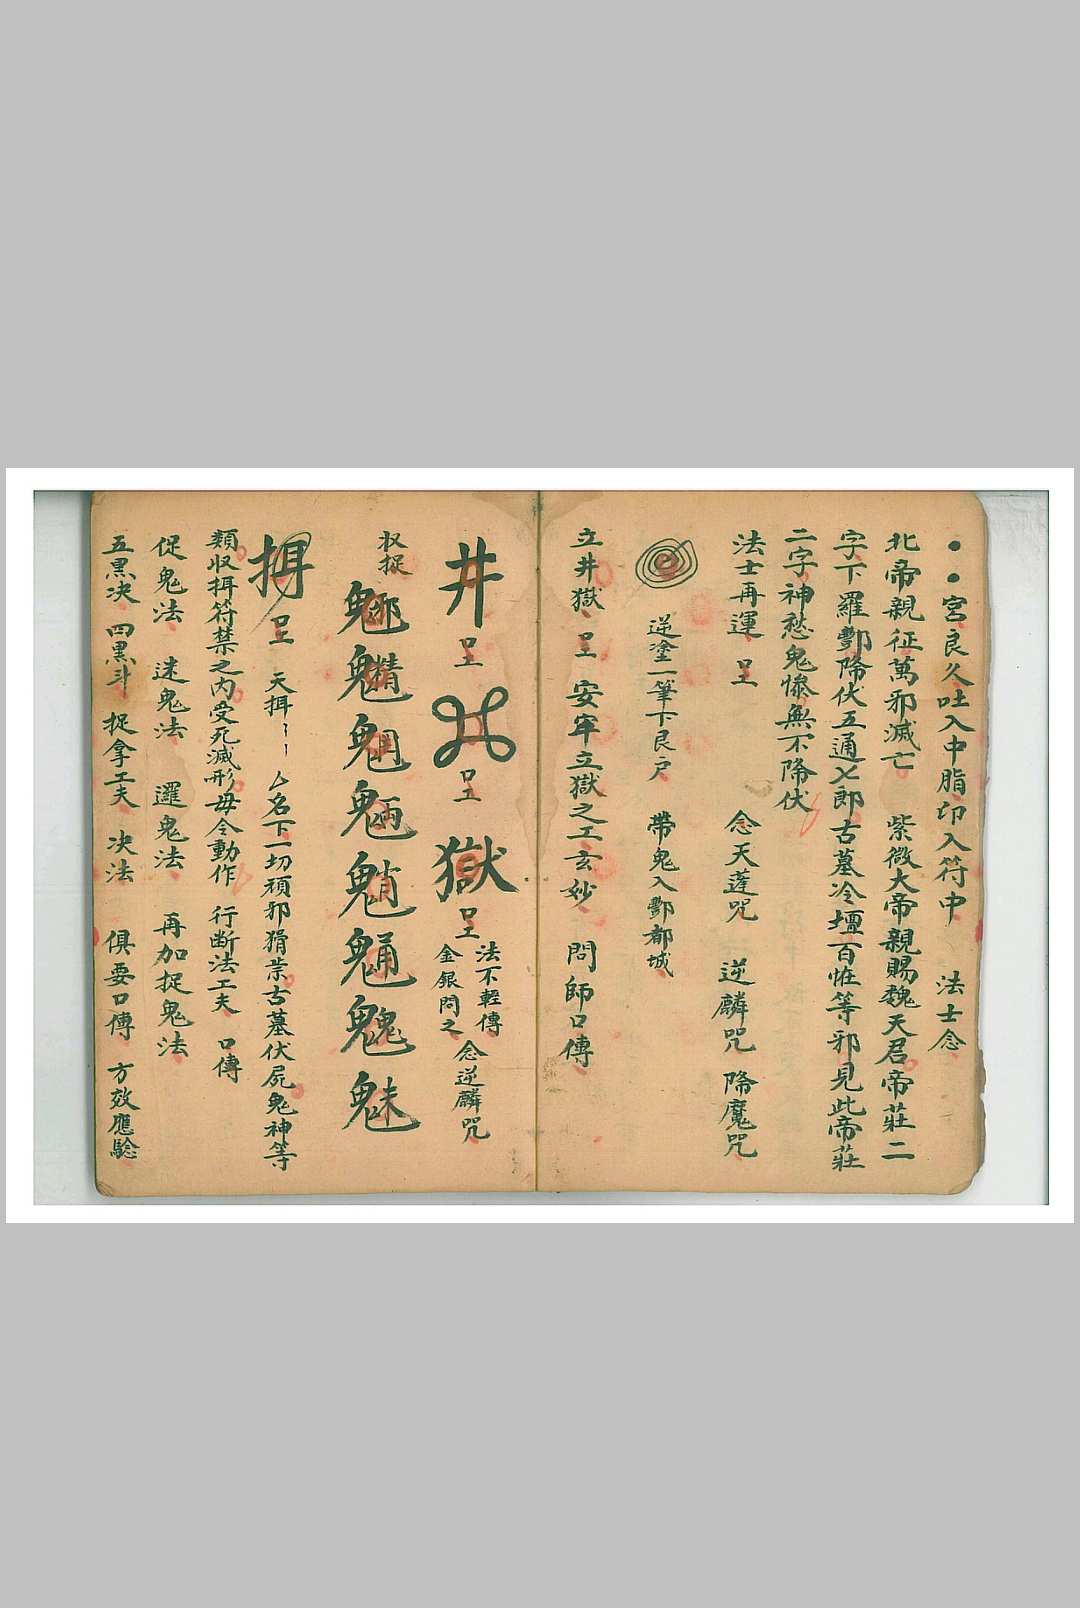 ••宮良久吐入中脂印入符中 法士念
北帝親征萬邪滅亡 紫微大帝親賜魏天君帝莊二
字下羅酆降伏五通乂郎古墓冷壇百恠等邪見此帝莊
二字神愁鬼慘無不降伏
法士再運 呈 念天蓬咒 逆麟咒 降魔咒
逆塗一筆下艮户 帶鬼入酆都城
立井獄呈 安牢立獄之工玄妙 問師口傳
井呈 呈 獄呈 法不輕傳 金銀問之 念逆麟咒
収捉
𩲅
魅
揖呈 天揖 厶名下一切頑邪猾祟古墓伏屍鬼神等
類収揖符禁之内受死滅形毋令動作 行断法工夫 口傳
促鬼法 迷鬼法 邏鬼法 再加捉鬼法
五黑决 四黑斗 捉拿工夫 决法 俱要口傳 方效應驗